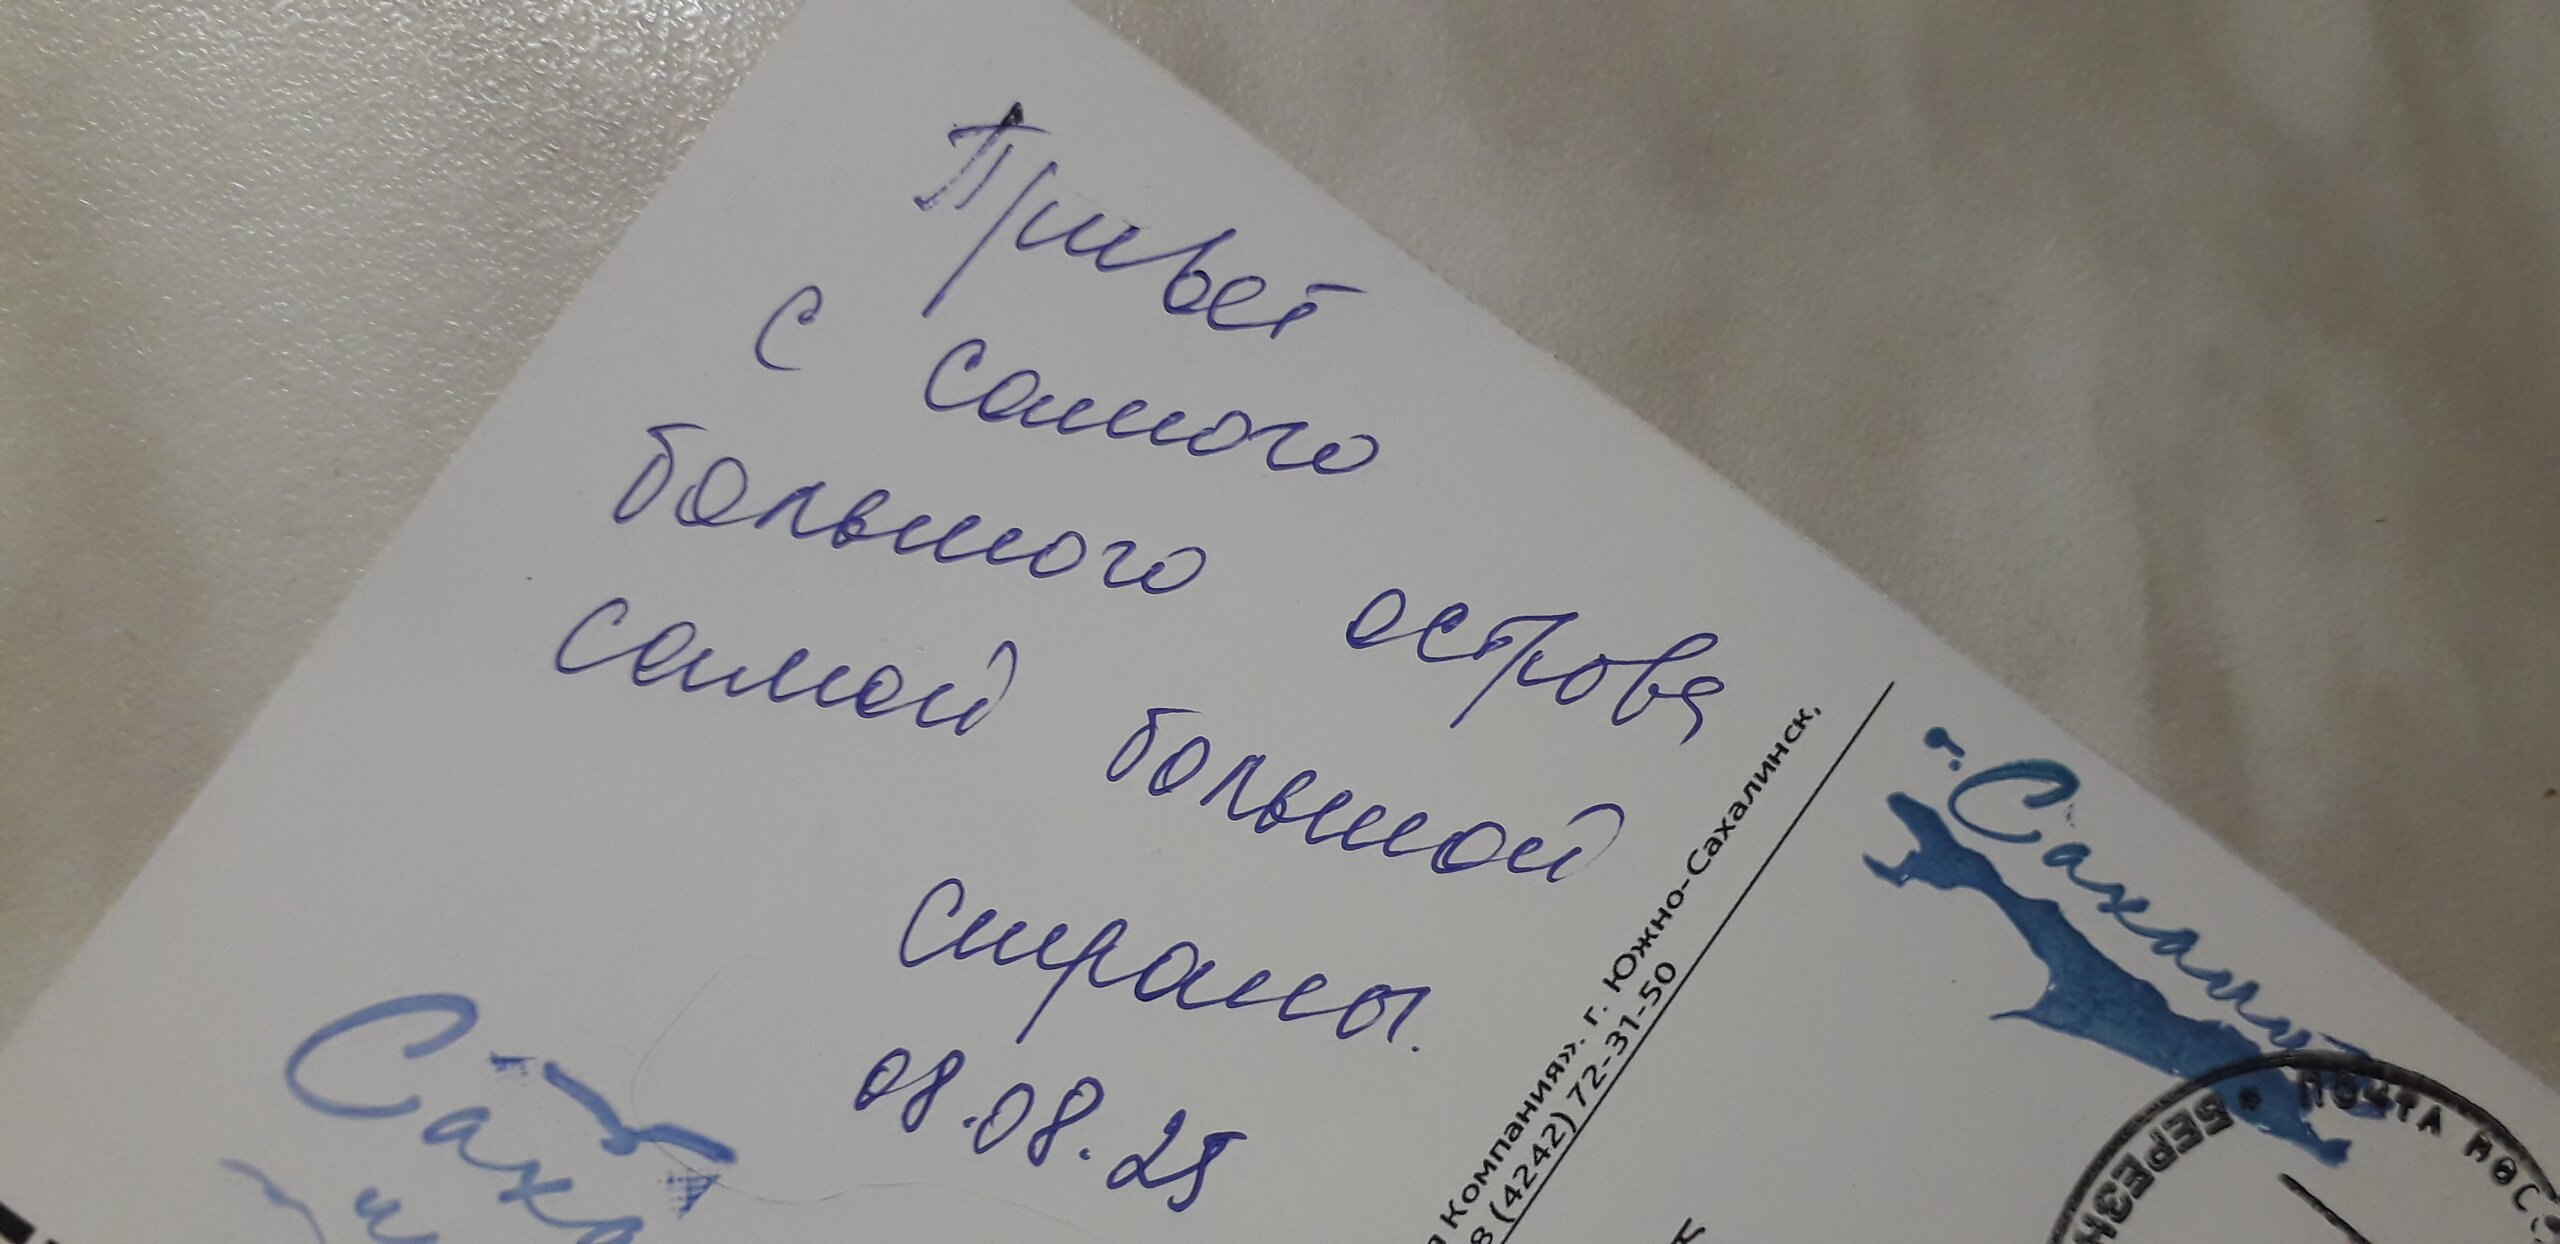 Привет
с самого
большого острова
самой большой
страны.
08.08.25
Компания». г. Южно-Сахалинск,
8 (4242) 72-31-50
о. Сахалин
ПОЧТА
Саха